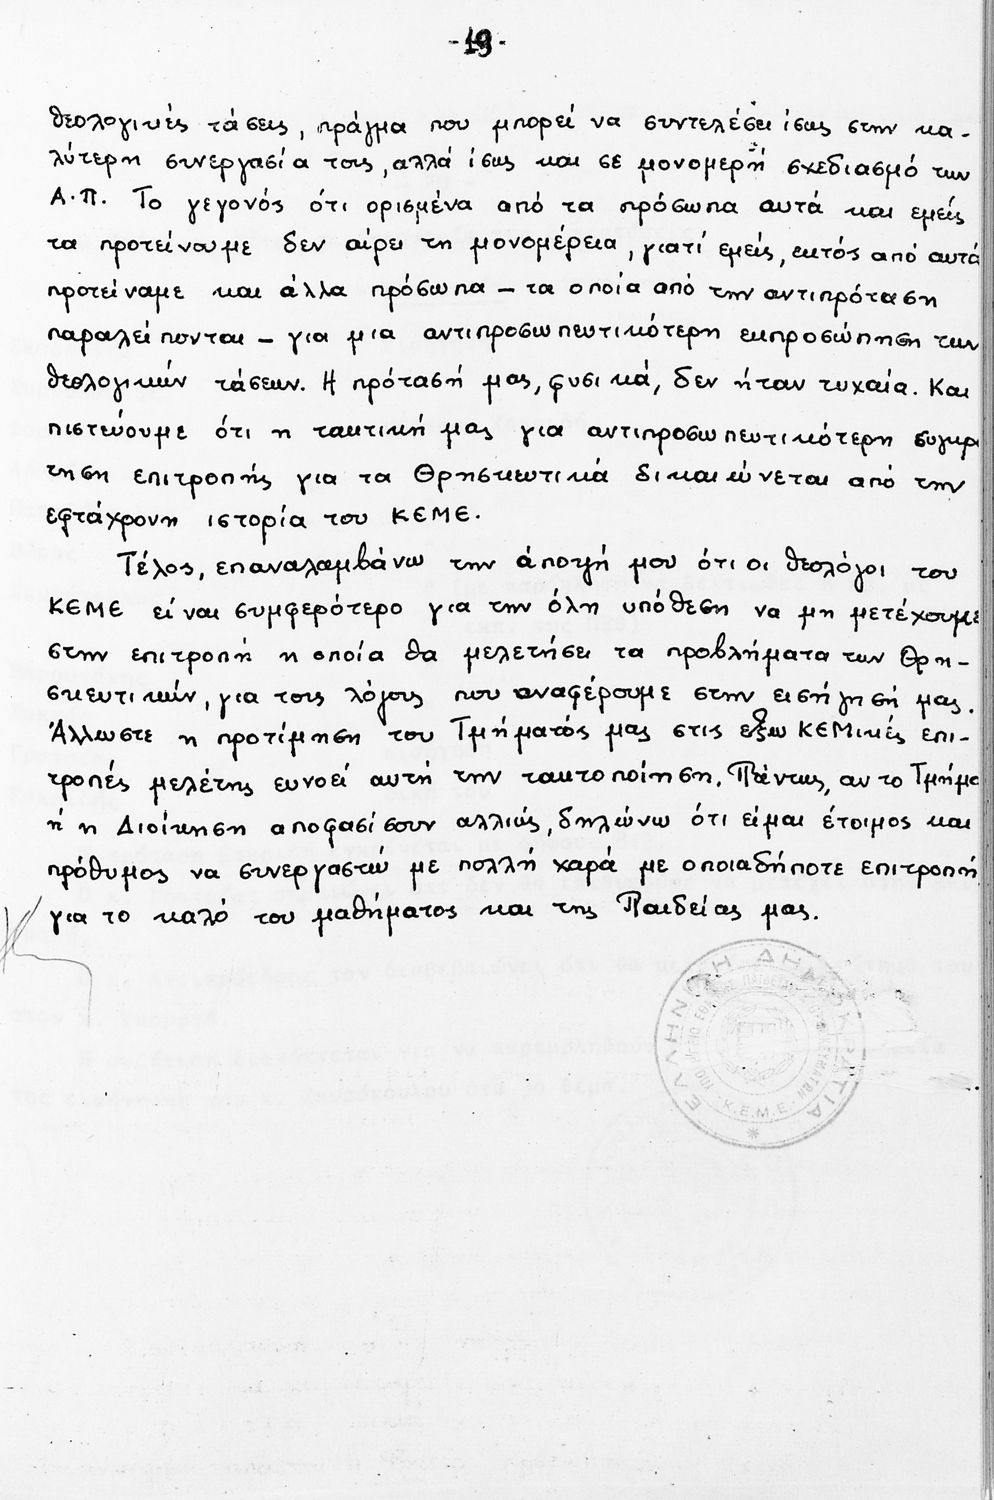 -19-
θεολογικές τάσεις, πράγμα που μπορεί να συντελέσει ίσως στην κα-
λύτερη συνεργασία τους, αλλά ίσως και σε μονομερή σχεδιασμό των
Α.Π. Το γεγονός ότι ορισμένα από τα πρόσωπα αυτά και εμείς
τα προτείνουμε δεν αίρει τη μονομέρεια, γιατί εμείς, εκτός από αυτά
προτείναμε και άλλα πρόσωπα – τα οποία από την αντιπρόταση
παραλείπονται – για μια αντιπροσωπευτικότερη εκπροσώπηση των
θεολογικών τάσεων. Η πρότασή μας, φυσικά, δεν ήταν τυχαία. Και
πιστεύουμε ότι η τακτική μας για αντιπροσωπευτικότερη συγκρ
τηση επιτροπής για τα Θρησκευτικά δικαιώνεται από την
εφτάχρονη ιστορία του ΚΕΜΕ.
Τέλος, επαναλαμβάνω την άποψή μου ότι οι θεολόγοι του
ΚΕΜΕ είναι συμφερότερο για την όλη υπόθεση να μη μετέχουμε
στην επιτροπή η οποία θα μελετήσει τα προβλήματα των Θρη-
σκευτικών, για τους λόγους που αναφέρουμε στην εισήγησή μας.
Άλλωστε η προτίμηση του Τμήματός μας στις έξω ΚΕΜικές επι-
τροπές μελέτης ευνοεί αυτή την τακτοποίηση. Πάντως, αν το Τμήμα
ή η Διοίκηση αποφασίσουν αλλιώς, δηλώνω ότι είμαι έτοιμος και
πρόθυμος να συνεργαστώ με πολλή χαρά με οποιαδήποτε επιτροπή
για το καλό του μαθήματος και της Παιδείας μας.
ΕΛΛΗΝΙΚΗ ΔΗΜΟΚΡΑΤΙΑ
Κ.Ε.Μ.Ε.